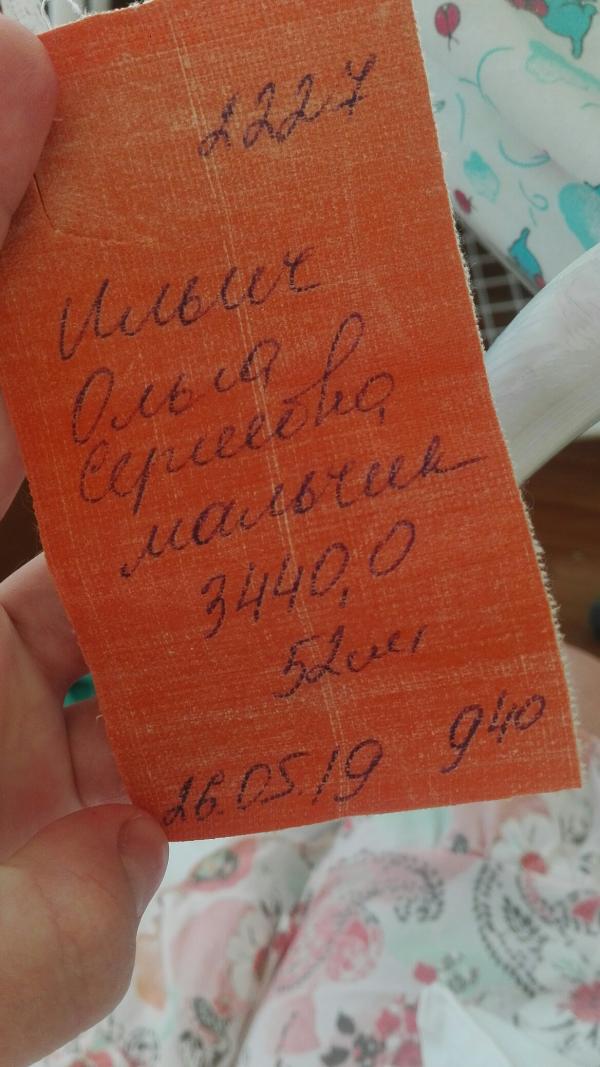 2227
Ильич
Ольга
Сергеевна
мальчик
3440,0
52см
26.05.19 9 40